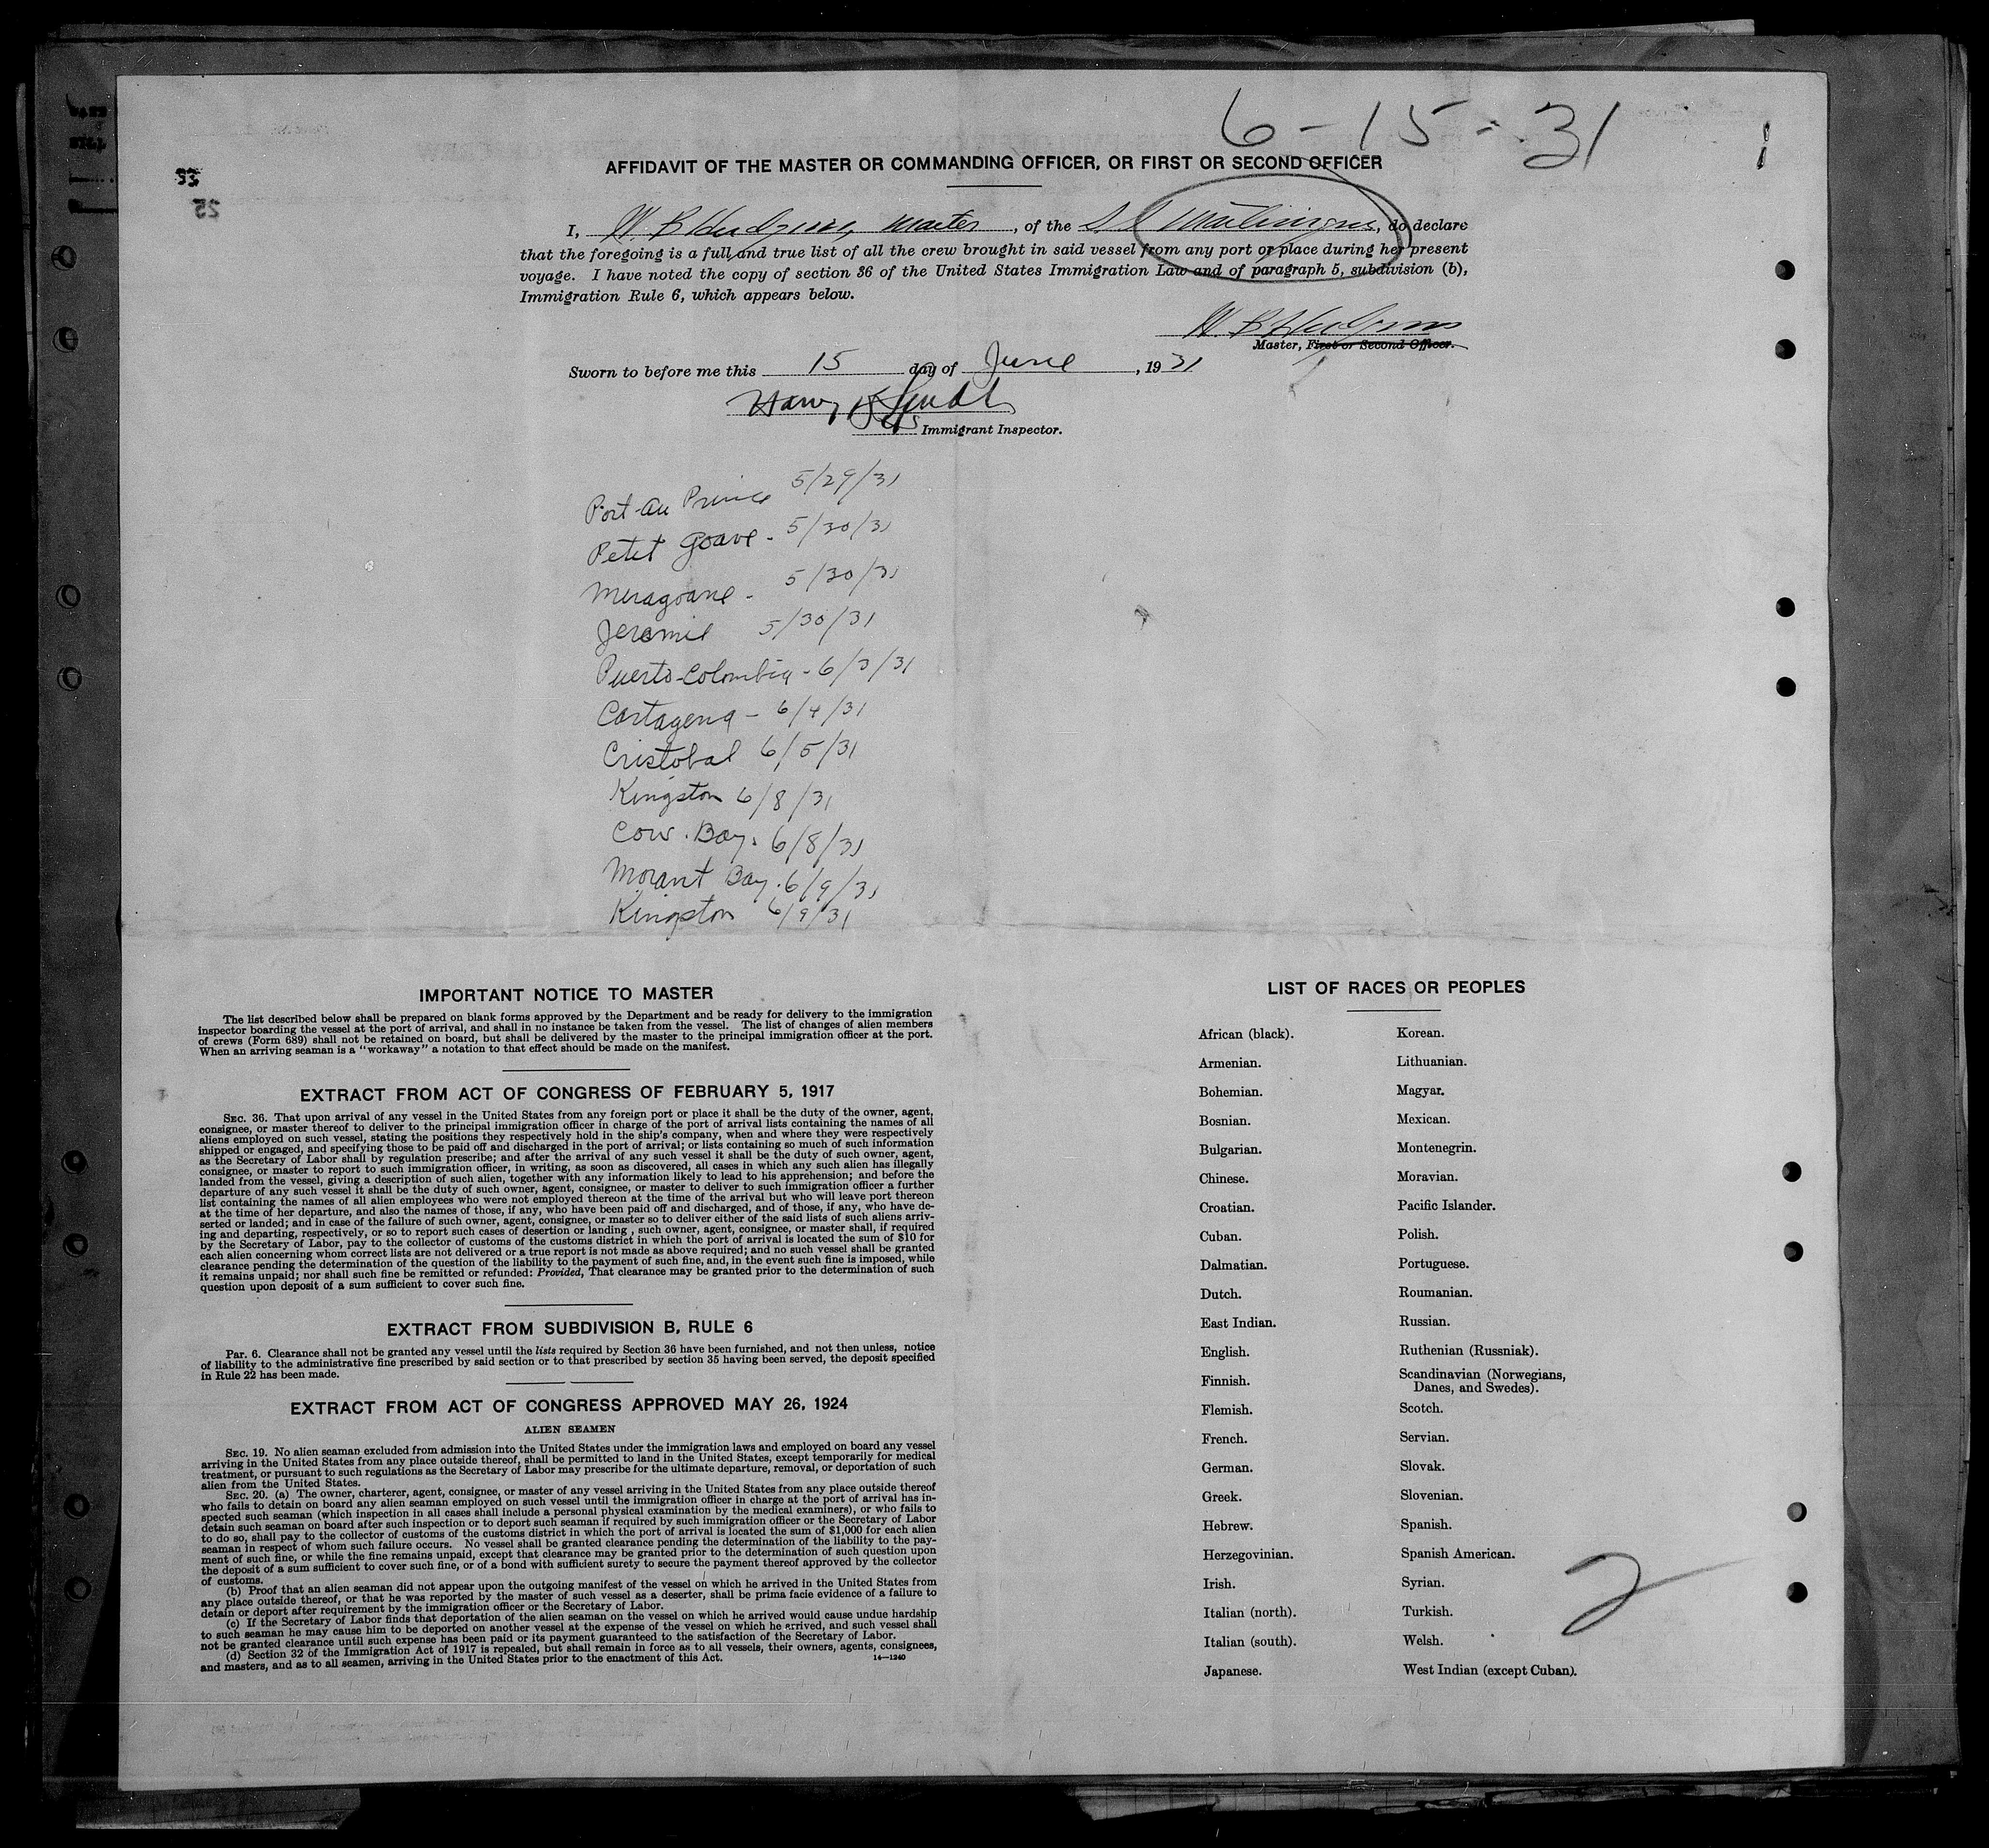 6-15-31
AFFIDAVIT OF THE MASTER OR COMMANDING OFFICER, OR FIRST OR SECOND OFFICER
I, W. B. Hudgins, Master, of the S.S. Martinique, do declare
that the foregoing is a full and true list of all the crew brought in said vessel from any port or place during her present
voyage. I have noted the copy of section 36 of the United States Immigration Law and of paragraph 5, subdivision (b),
Immigration Rule 6, which appears below.
W. B. Hudgins
Master, First or Second Officer.
Sworn to before me this 15 day of June, 1931
Harry
Immigrant Inspector.
Port-Au Prince 5/29/31
Petit Goave - 5/30/31
Miragoane - 5/30/31
Jeremie 5/30/31
Puerto-Colombia - 6/3/31
Cartagena - 6/4/31
Cristobal 6/5/31
Kingston 6/8/31
Cow. Bay. 6/8/31
Morant Bay. 6/9/31
Kingston 6/9/31
IMPORTANT NOTICE TO MASTER
The list described below shall be prepared on blank forms approved by the Department and be ready for delivery to the immigration
inspector boarding the vessel at the port of arrival, and shall in no instance be taken from the vessel. The list of changes of alien members
of crews (Form 689) shall not be retained on board, but shall be delivered by the master to the principal immigration officer at the port.
When an arriving seaman is a "workaway" a notation to that effect should be made on the manifest.
EXTRACT FROM ACT OF CONGRESS OF FEBRUARY 5, 1917
SEC. 36. That upon arrival of any vessel in the United States from any foreign port or place it shall be the duty of the owner, agent,
consignee, or master thereof to deliver to the principal immigration officer in charge of the port of arrival lists containing the names of all
aliens employed on such vessel, stating the positions they respectively hold in the ship's company, when and where they were respectively
shipped or engaged, and specifying those to be paid off and discharged in the port of arrival; or lists containing so much of such information
as the Secretary of Labor shall by regulation prescribe; and after the arrival of any such vessel it shall be the duty of such owner, agent,
consignee, or master to report to such immigration officer, in writing, as soon as discovered, all cases in which any such alien has illegally
landed from the vessel, giving a description of such alien, together with any information likely to lead to his apprehension; and before the
departure of any such vessel it shall be the duty of such owner, agent, consignee, or master to deliver to such immigration officer a further
list containing the names of all alien employees who were not employed thereon at the time of the arrival but who will leave port thereon
at the time of her departure, and also the names of those, if any, who have been paid off and discharged, and of those, if any, who have de-
serted or landed; and in case of the failure of such owner, agent, consignee, or master so to deliver either of the said lists of such aliens arriv-
ing and departing, respectively, or so to report such cases of desertion or landing , such owner, agent, consignee, or master shall, if required
by the Secretary of Labor, pay to the collector of customs of the customs district in which the port of arrival is located the sum of $10 for
each alien concerning whom correct lists are not delivered or a true report is not made as above required; and no such vessel shall be granted
clearance pending the determination of the question of the liability to the payment of such fine, and, in the event such fine is imposed, while
it remains unpaid; nor shall such fine be remitted or refunded: Provided, That clearance may be granted prior to the determination of such
question upon deposit of a sum sufficient to cover such fine.
EXTRACT FROM SUBDIVISION B, RULE 6
Par. 6. Clearance shall not be granted any vessel until the lists required by Section 36 have been furnished, and not then unless, notice
of liability to the administrative fine prescribed by said section or to that prescribed by section 35 having been served, the deposit specified
in Rule 22 has been made.
EXTRACT FROM ACT OF CONGRESS APPROVED MAY 26, 1924
ALIEN SEAMEN
SEC. 19. No alien seaman excluded from admission into the United States under the immigration laws and employed on board any vessel
arriving in the United States from any place outside thereof, shall be permitted to land in the United States, except temporarily for medical
treatment, or pursuant to such regulations as the Secretary of Labor may prescribe for the ultimate departure, removal, or deportation of such
alien from the United States.
SEC. 20. (a) The owner, charterer, agent, consignee, or master of any vessel arriving in the United States from any place outside thereof
who fails to detain on board any alien seaman employed on such vessel until the immigration officer in charge at the port of arrival has in-
spected such seaman (which inspection in all cases shall include a personal physical examination by the medical examiners), or who fails to
detain such seaman on board after such inspection or to deport such seaman if required by such immigration officer or the Secretary of Labor
to do so, shall pay to the collector of customs of the customs district in which the port of arrival is located the sum of $1,000 for each alien
seaman in respect of whom such failure occurs. No vessel shall be granted clearance pending the determination of the liability to the pay-
ment of such fine, or while the fine remains unpaid, except that clearance may be granted prior to the determination of such question upon
the deposit of a sum sufficient to cover such fine, or of a bond with sufficient surety to secure the payment thereof approved by the collector
of customs.
(b) Proof that an alien seaman did not appear upon the outgoing manifest of the vessel on which he arrived in the United States from
any place outside thereof, or that he was reported by the master of such vessel as a deserter, shall be prima facie evidence of a failure to
detain or deport after requirement by the immigration officer or the Secretary of Labor.
(c) If the Secretary of Labor finds that deportation of the alien seaman on the vessel on which he arrived would cause undue hardship
to such seaman he may cause him to be deported on another vessel at the expense of the vessel on which he arrived, and such vessel shall
not be granted clearance until such expense has been paid or its payment guaranteed to the satisfaction of the Secretary of Labor.
(d) Section 32 of the Immigration Act of 1917 is repealed, but shall remain in force as to all vessels, their owners, agents, consignees,
and masters, and as to all seamen, arriving in the United States prior to the enactment of this Act.
14—1240
LIST OF RACES OR PEOPLES
African (black). Korean.
Armenian. Lithuanian.
Bohemian. Magyar.
Bosnian. Mexican.
Bulgarian. Montenegrin.
Chinese. Moravian.
Croatian. Pacific Islander.
Cuban. Polish.
Dalmatian. Portuguese.
Dutch. Roumanian.
East Indian. Russian.
English. Ruthenian (Russniak).
Finnish. Scandinavian (Norwegians,
Danes, and Swedes).
Flemish. Scotch.
French. Servian.
German. Slovak.
Greek. Slovenian.
Hebrew. Spanish.
Herzegovinian. Spanish American.
Irish. Syrian.
Italian (north). Turkish.
Italian (south). Welsh.
Japanese. West Indian (except Cuban).
2